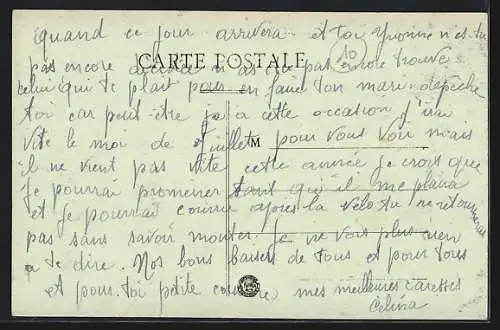 Quand ce jour arrivera et toi Yvonne n'es tu
CARTE POSTALE
10
pas encore n'as tu pas encore trouvé
celui qui te plait pour en faire ton mari dépêche
toi car peut-être à cette occasion j'irai
vite le mois de Juillet pour vous voir mais
M
il ne vient pas vite cette année je crois que
je pourrai promener tant qu'il me plaira
et je pourrai courir après la vélo tu ne retourneras
pas sans savoir monter. Je ne vois plus rien
a te dire. Nos bons baisers de tous et pour tous
et pour toi petite mes meilleures caresses
Celina